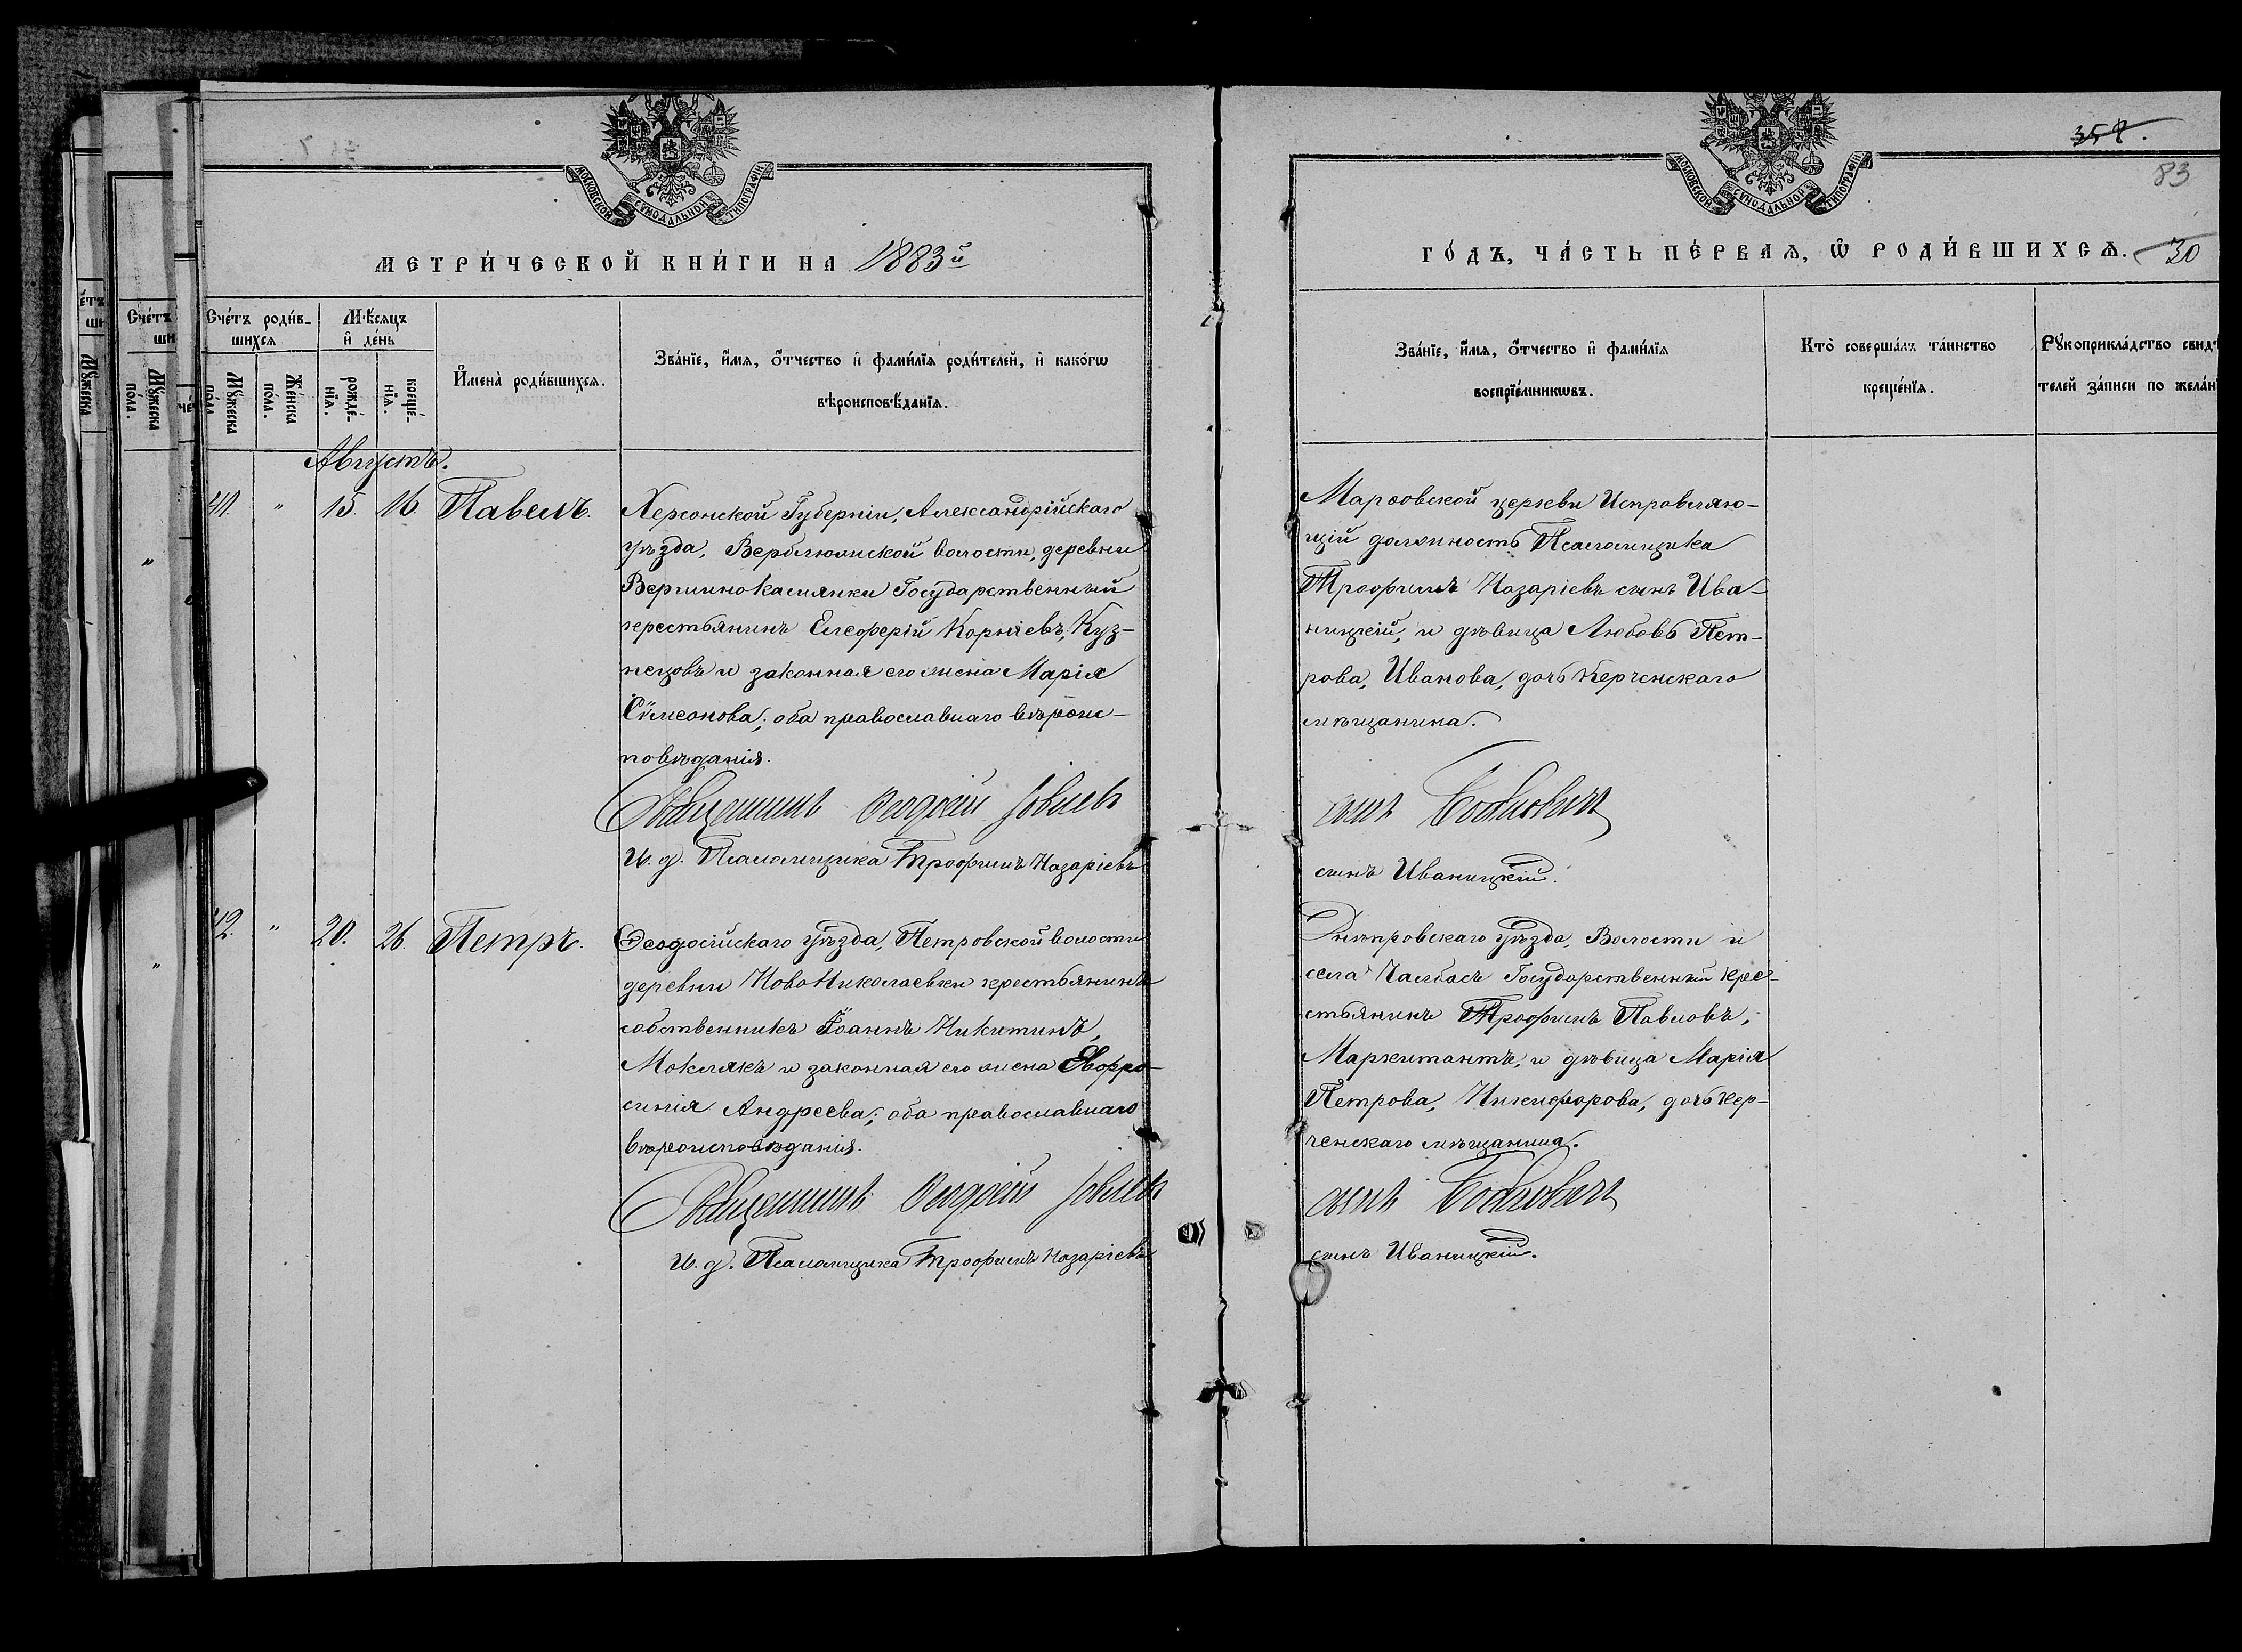 МОСКОВСКОЙ СѴНОДАЛЬНОЙ ТИПОГРАФІИ
МЕТРИ́ЧЕСКОЙ КНИ́ГИ НА 1883й
Сче́тъ роди́в-
шихся
Мꙋ́жеска
пола.
Же́нска
по́ла.
Мѣ́сяцъ
и҆ де́нь
рожде́-
нїя.
креще́-
нїя.
И҆мена̀ роди́вшихся.
Зва́нїе, и҆́мя, ѻ҆́тчество и҆ фами́лїя роди́телей, и҆ како́гѡ
вѣроисповѣ́данїя.
Августъ.
41. " 15. 16. Павелъ.
Херсонской Губерніи, Александрійскаго
уѣзда, Верблюжской волости, деревни
Вершинокаменки Государственный
крестьянинъ Елеферій Корнѣевъ, Куз-
нецовъ и законная его жена Марія
Сѵмеонова; оба православнаго вѣрои-
повѣданія.
Священникъ
И. д. Псаломщика Трофимъ Назаріевъ
42. " 20. 26. Петръ.
Ѳеодосійскаго уѣзда, Петровской волости
деревни Ново Николаевки крестьянинъ
собственникъ Іоаннъ Никитинъ,
Моклякъ и законная его жена Евфро-
синія Андреева; оба православнаго
вѣроисповѣданія.
Священникъ
И. д. Псаломщика Трофимъ Назаріевъ
МОСКОВСКОЙ СѴНОДАЛЬНОЙ ТИПОГРАФІИ
83
ГО́ДЪ, ЧА́СТЬ ПЕ́РВАЯ, Ѡ҆ РОДИ́ВШИХСЯ. 30
Зва́нїе, и҆́мя, ѻ҆́тчество и҆ фами́лїя
воспрїе́мникѡвъ.
Кто̀ соверша́лъ та́инство
креще́нїя.
Рꙋкоприкла́дство свидѣ
телей за́писи по жела́нї
Марфовской церкви Исправляю-
щій должность Псаломщика
Трофимъ Назаріевъ сынъ Ива-
ницкій, и дѣвица Любовь Пет-
рова, Иванова, дочь Керченскаго
мѣщанина.
сынъ
сынъ Иваницкій.
Днѣпровскаго уѣзда, Волости и
села Чалбасъ Государственный кре-
стьянинъ Трофимъ Павловъ,
Маркитантъ, и дѣвица Марія
Петрова, Никифорова, дочь Кер-
ченскаго мѣщанина.
сынъ
сынъ Иваницкій.